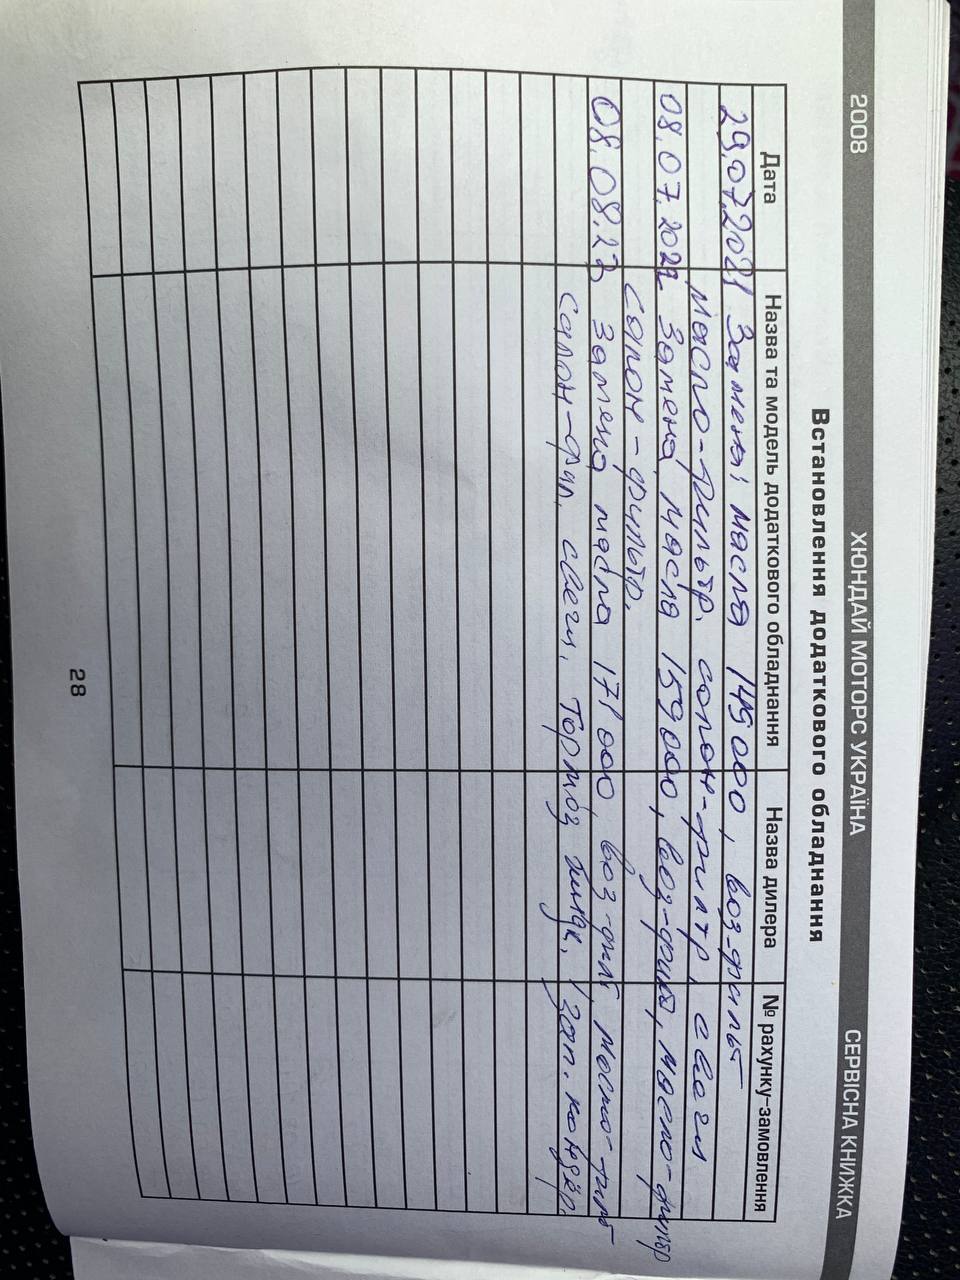 2008 ХЮНДАЙ МОТОРС УКРАЇНА СЕРВІСНА КНИЖКА
Встановлення додаткового обладнання
Дата Назва та модель додаткового обладнання Назва дилера № рахунку-замовлення
29.07.2021 Замена масла 145000, воз-фильт
Масло-фильтр. салон-филтр, свечи
08.07.2022 Замена масла 159000, воз-фильт, масло-фильтр
салон-фильтр.
08.08.23 Замена масла 178000, воз-фил, масло-филт
Салон-фил, свечи. Тормоз жидк. зап. кондёр.
28